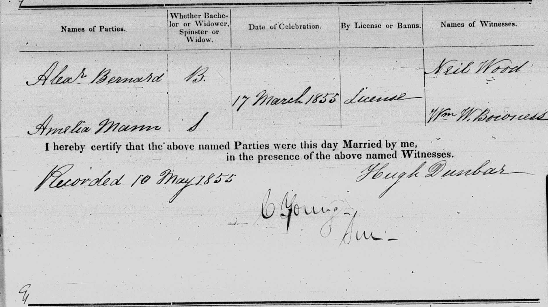 Names of Parties. Whether Bache- lor or Widower, Spinster or Widow. Date of Celebration. By License or Banns. Names of Witnesses.
Alexr Bernard B. Neil Wood
17 March 1855 License
Amelia Mann S Wm W. Bowness
I hereby certify that the above named Parties were this day Married by me,
in the presence of the above named Witnesses.
Recorded 10 May 1855 Hugh Dunbar
C Young